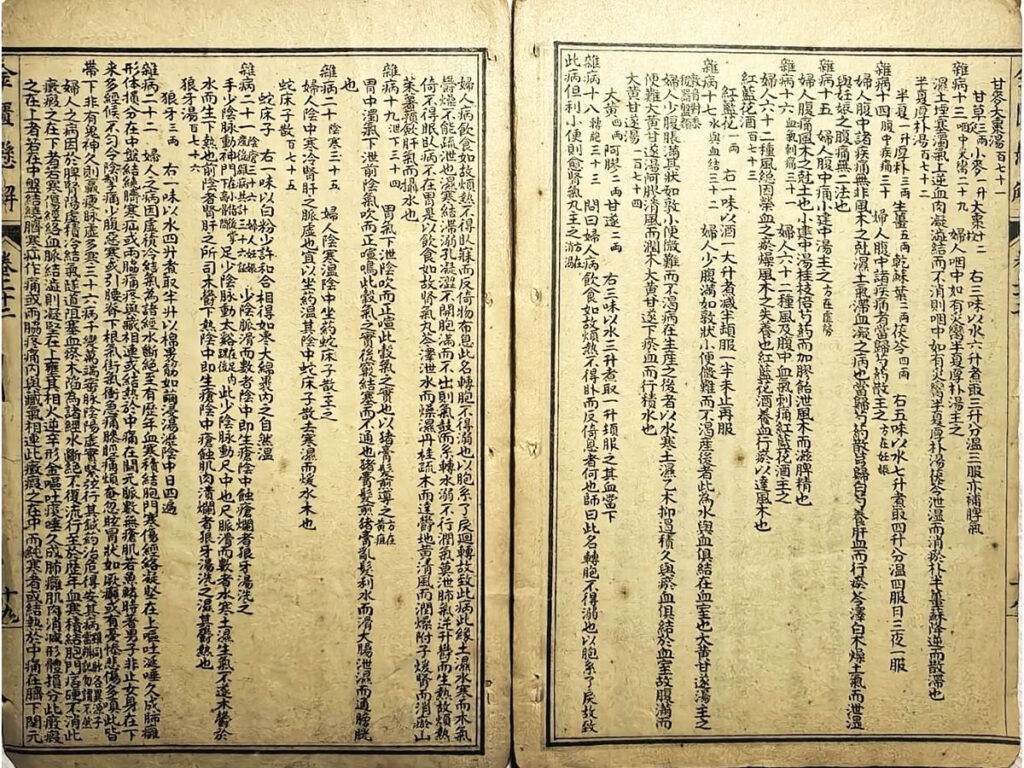 甘麥大棗湯百七十一
甘草三兩 小麥一升 大棗十二 右三味以水六升煮取三升分溫三服亦補脾氣
雜病十三咽中炙臠二十九 婦人咽中如有炙臠半夏厚朴湯主之
濕土堙塞濁氣上逆血肉凝瀒結而不消則咽中如有炙臠半夏厚朴湯茯苓泄溫而消瘀朴半薑蘇降逆而散滯也
半夏厚朴湯百七十二
半夏一升 厚朴三兩 生薑五兩 乾蘇葉二兩 茯苓四兩 右五味以水七升煮取四升分溫四服日三夜一服
雜病十四腹中疾痛三十 婦人腹中諸疾病者當歸芍藥散主之方在妊娠
婦人腹中諸疾痛無非風木之剋濕土氣滯血凝之病也當歸芍藥散芎歸白芍養肝血而行瘀苓澤白朮燥土氣而泄溫
與妊娠之腹痛無二法也
雜病十五 婦人腹中痛小建中湯主之方在虛勞
婦人腹痛風木之剋土也小建中湯桂枝倍芍藥而加膠飴泄風木而滋脾精也
雜病十六血氣刺痛三十一 婦人六十二種風及腹中血氣刺痛紅藍花酒主之
婦人六十二種風總因榮血之瘀燥風木之失養也紅藍花酒養血行瘀以達風木也
紅藍花酒百七十三
紅藍花一兩 右一味以酒一大升煮減半頓服一半未止再服
雜病十七水與血結三十二 婦人少腹滿如敦狀小便微難而不渴產後者此為水與血俱結在血室也大黃甘遂湯主之
婦人少腹脹滿其狀如敦小便微難而不渴病在生產之後者以水寒土濕乙木抑遏積久與瘀血俱結於血室故腹滿而
便難大黃甘遂湯阿膠清風而潤木大黃甘遂下瘀血而行積水也
大黃甘遂湯百七十四
大黃四兩 阿膠二兩 甘遂二兩 右三味以水三升煮取一升頓服之其血當下
雜病十八轉胞三十三 問曰婦人病飲食如故煩熱不得臥而反倚息者何也師曰此名轉胞不得溺也以胞系了戾故致
此病但利小便則愈腎氣丸主之方在
婦人病飲食如故煩熱不得臥寐而反倚物布息此名轉胞不得溺也以胞系了戾迴轉故致此病此緣土濕水寒而木氣
鬱燥不能疏泄也濕寒結滯溺孔凝澀不開胞滿而不出則氣鼓而系轉水溺不行濁氣莫泄肺氣逆升鬱而生熱故煩熱
倚不得眠臥病不在胃是以飲食如故腎氣丸苓澤泄水而燥濕丹桂疏木而達鬱地黃清風而潤燥附子煖腎而消瘀山
茱薯蕷斂肝氣而攝水也
雜病十九陰泄三十四 胃氣下泄陰吹而正喧此穀氣之實也以豬膏髮煎導之方在黃疸
胃中濁氣下泄前陰氣吹而正喧鳴此穀氣之實後竅結寒而不通也豬膏髮煎豬膏亂髮利水而滑大腸泄濕而通膀胱
也
雜病二十陰寒三十五 婦人陰寒溫陰中坐藥蛇床子散主之
婦人陰中寒冷腎肝之脈虛也宜以坐藥溫其陰中蛇床子散去寒濕而煖水木也
蛇床子散百七十五
蛇床子 右一味以白粉少許和合相得如棗大綿裹內之自然溫
雜病二十一 少陰脈滑而數者陰中即生瘡陰中蝕瘡爛者狼牙湯洗之
手少陰脈動神門 足少陰脈動太谿 此少陰脈動尺中也尺脈滑而數者水寒土濕生氣不遂木鬱於
水而生下熱也前陰者腎肝之所司木鬱下熱陰中即生瘡陰中瘡蝕肌肉潰爛者狼牙湯洗之濕其鬱熱也
狼牙湯百七十六
狼牙三兩 右一味以水四升煮取半升以綿裹筯如繭浸湯瀝陰中日四遍
雜病二十二 婦人之病因虛積冷結氣為諸經水斷絕至有歷年血寒積結胞門寒傷經絡凝堅在上嘔吐涎唾久成肺癰
形体損分在中盤結繞臍寒疝或兩脇疼痛與臟相連或結熱於中痛在關元脈數無瘡肌若魚鱗時著男子非止女身在下
來多經候不勻令陰掣痛少腹惡寒或引腰脊下根氣街氣衝急痛膝脛疼煩奄忽眩冒狀如厥癲或有憂慘悲傷多嗔此皆
帶下非有鬼神久則羸瘦脈虛多寒三十六病千變萬端審脈陰陽虛實緊弦行其鍼藥治危得安其病雖同脈各異源子
婦人之病因於脾腎陽虛積冷結氣遂道阻塞血瘀木陷為諸經水斷絕不復流行至於歷年血寒積結胞門瘀硬不消此
癥瘕之在下者若寒傷經絡血脈結澀則凝堅在上壅其相火逆辛形金嘔吐痰唾久成肺癰肌肉消減形體損分此癥瘕
之在上者若在中盤結繞臍寒疝作痛或兩脇疼痛內與臟氣相連此癥瘕之在中而純寒者或結熱於中痛在臍下關元
十九